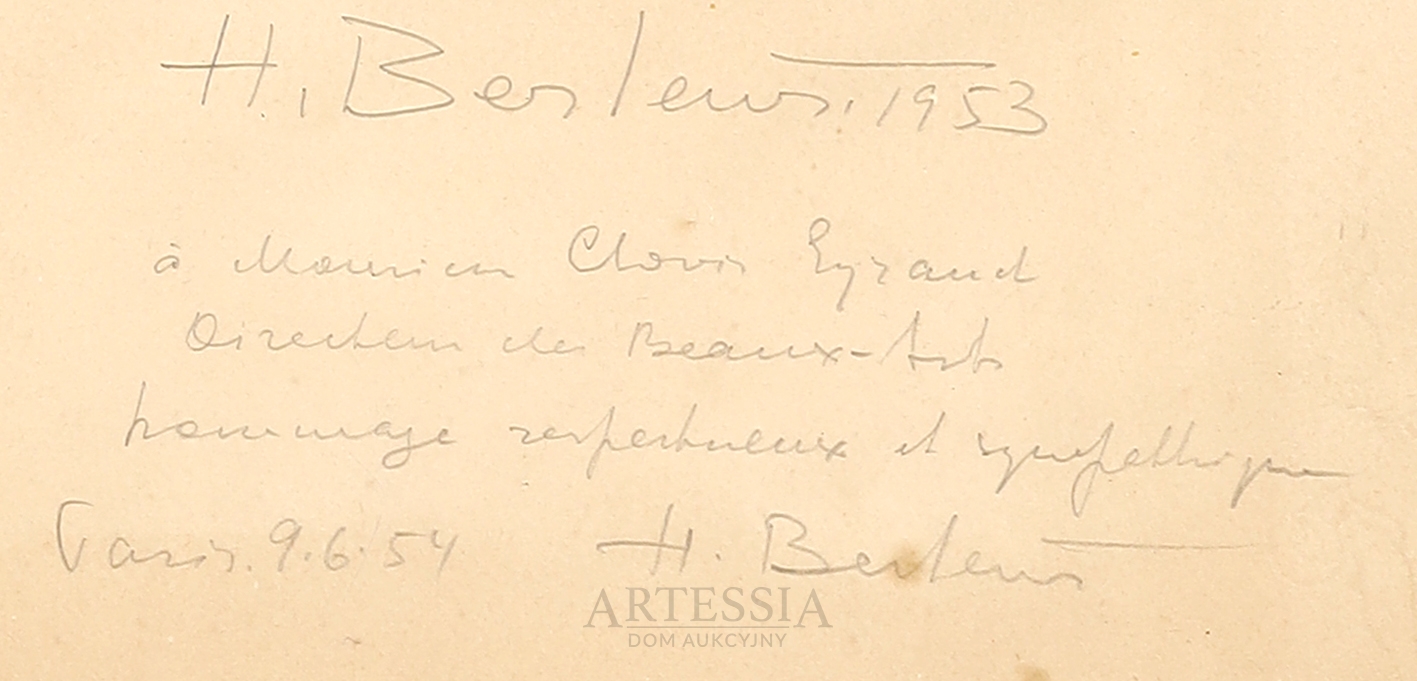 H. Berlewi. 1953
à Monsieur Clovis Eyraud
Directeur des Beaux-Arts
hommage respectueux et sympathique
Paris. 9.6.54 H. Berlewi
ARTESSIA
DOM AUKCYJNY